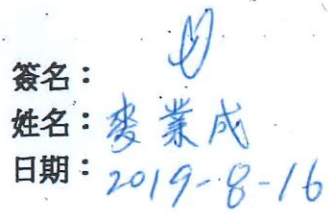 簽名：
姓名：麥業成
日期：2019-8-16